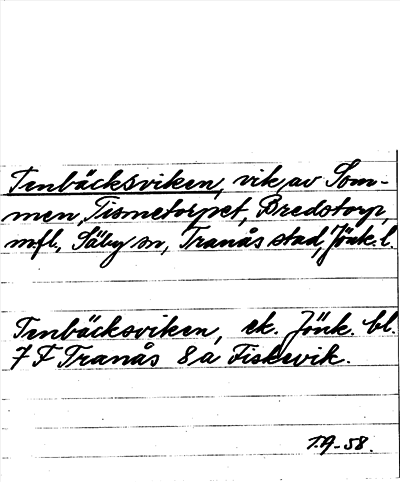 Tenbäcksviken, vik av Som-
men, Tismetorpet, Bredstorp
mfl., Säby sn, Tranås stad, Jönk. l.
Tenbäcksviken, ek. Jönk. bl.
7 F Tranås 8 a Fiskevik.
T.A-58.